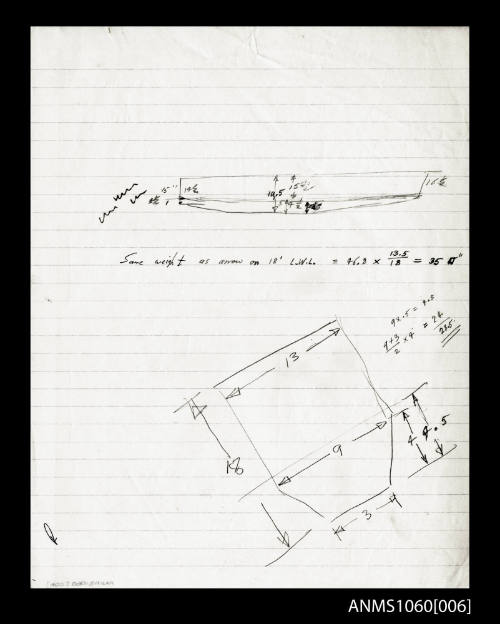 15"
14½
16½
19.5
15½
4½
1
Same weight as arrow on 18' L.W.L. = 46.8 × 13.5/18 = 35 □"
9×.5 = 4.5
9+3/2 × 4 = 24
28.5
13
18
9
4
4.5
3
ANMS1060[006]